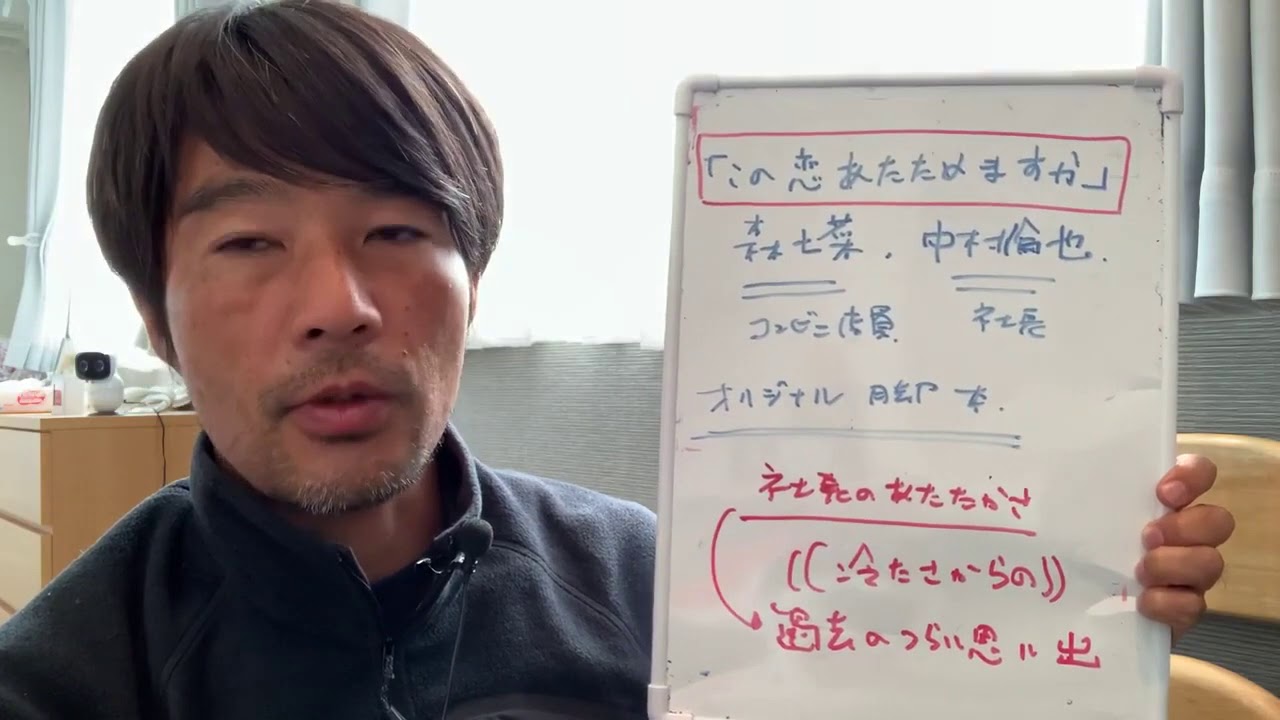 「この恋あたためますか」
森七菜. 中村倫也.
コンビニ店員 社長
オリジナル脚本.
社長のあたたかさ
((冷たさからの))
過去のつらい思い出